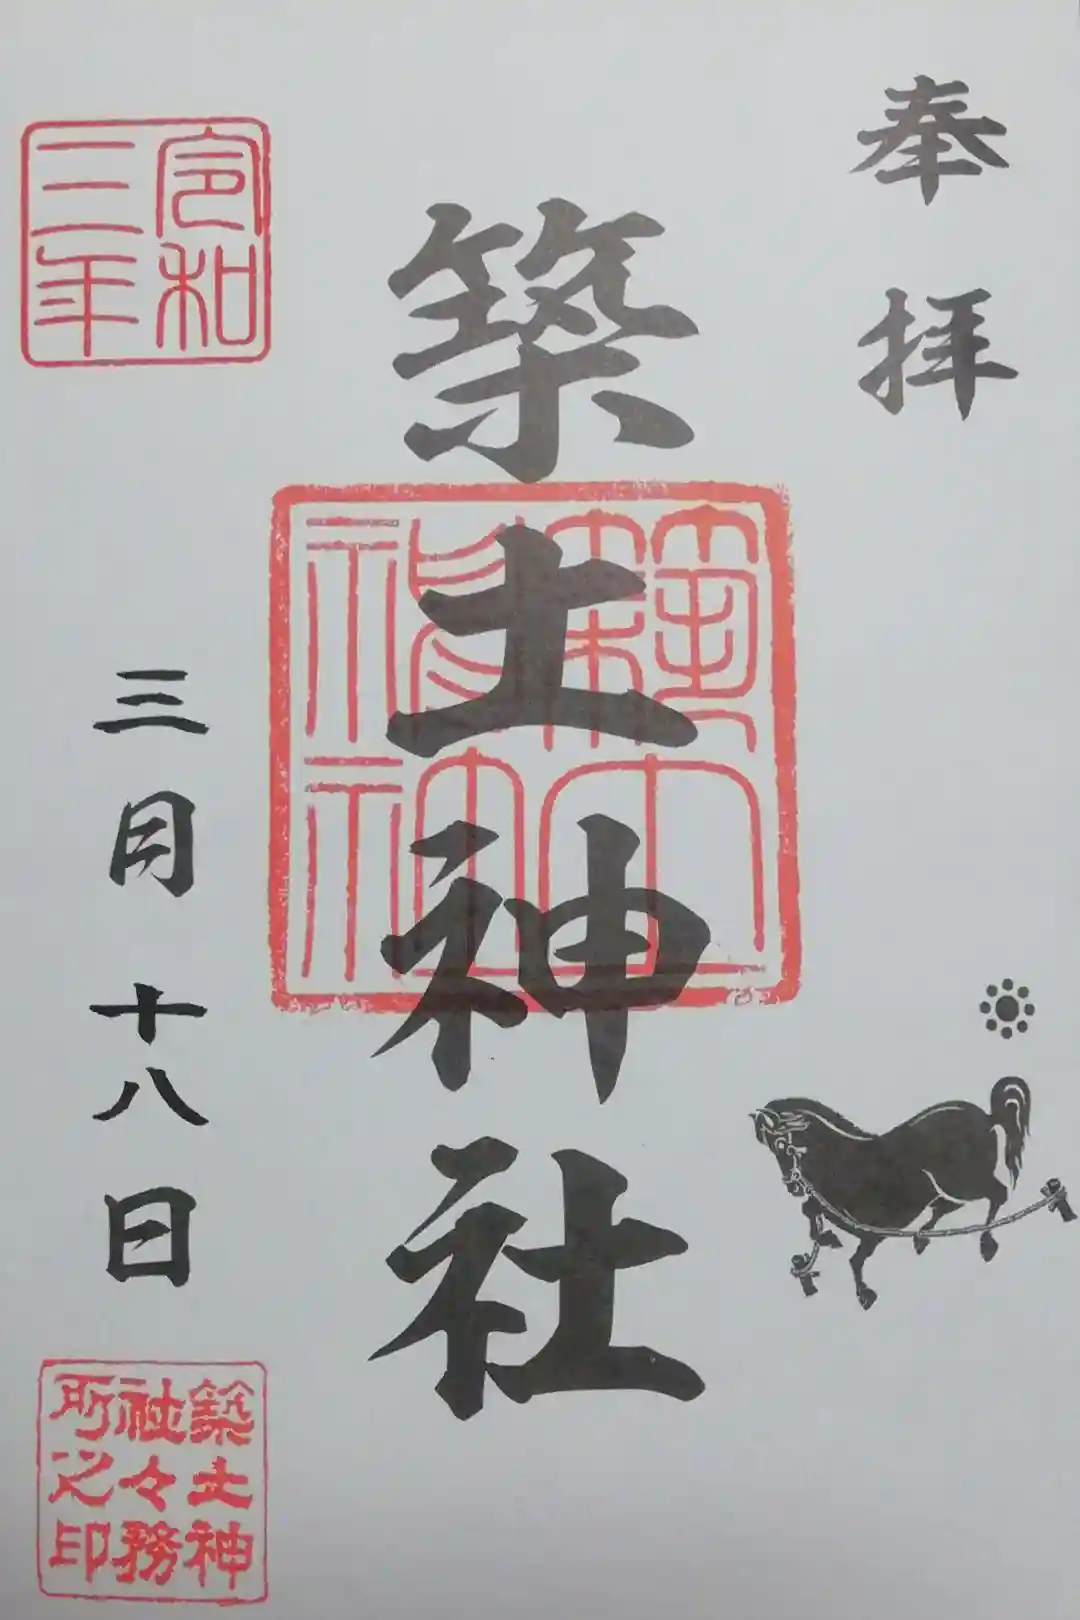 奉拝
築土神社
令和
三年
三月十八日
築土神
社々務
所之印